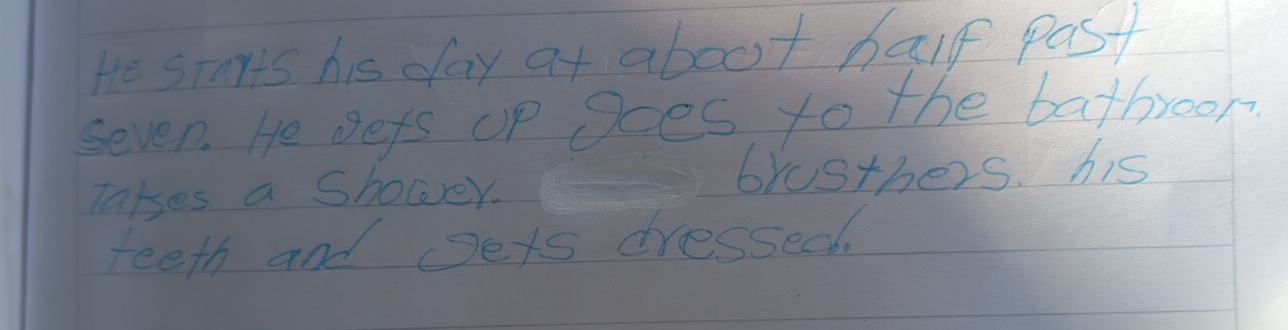 He starts his day at about half past
seven. He gets up goes to the bathroom.
Takes a shower. brusthers. his
teeth and gets dressed.